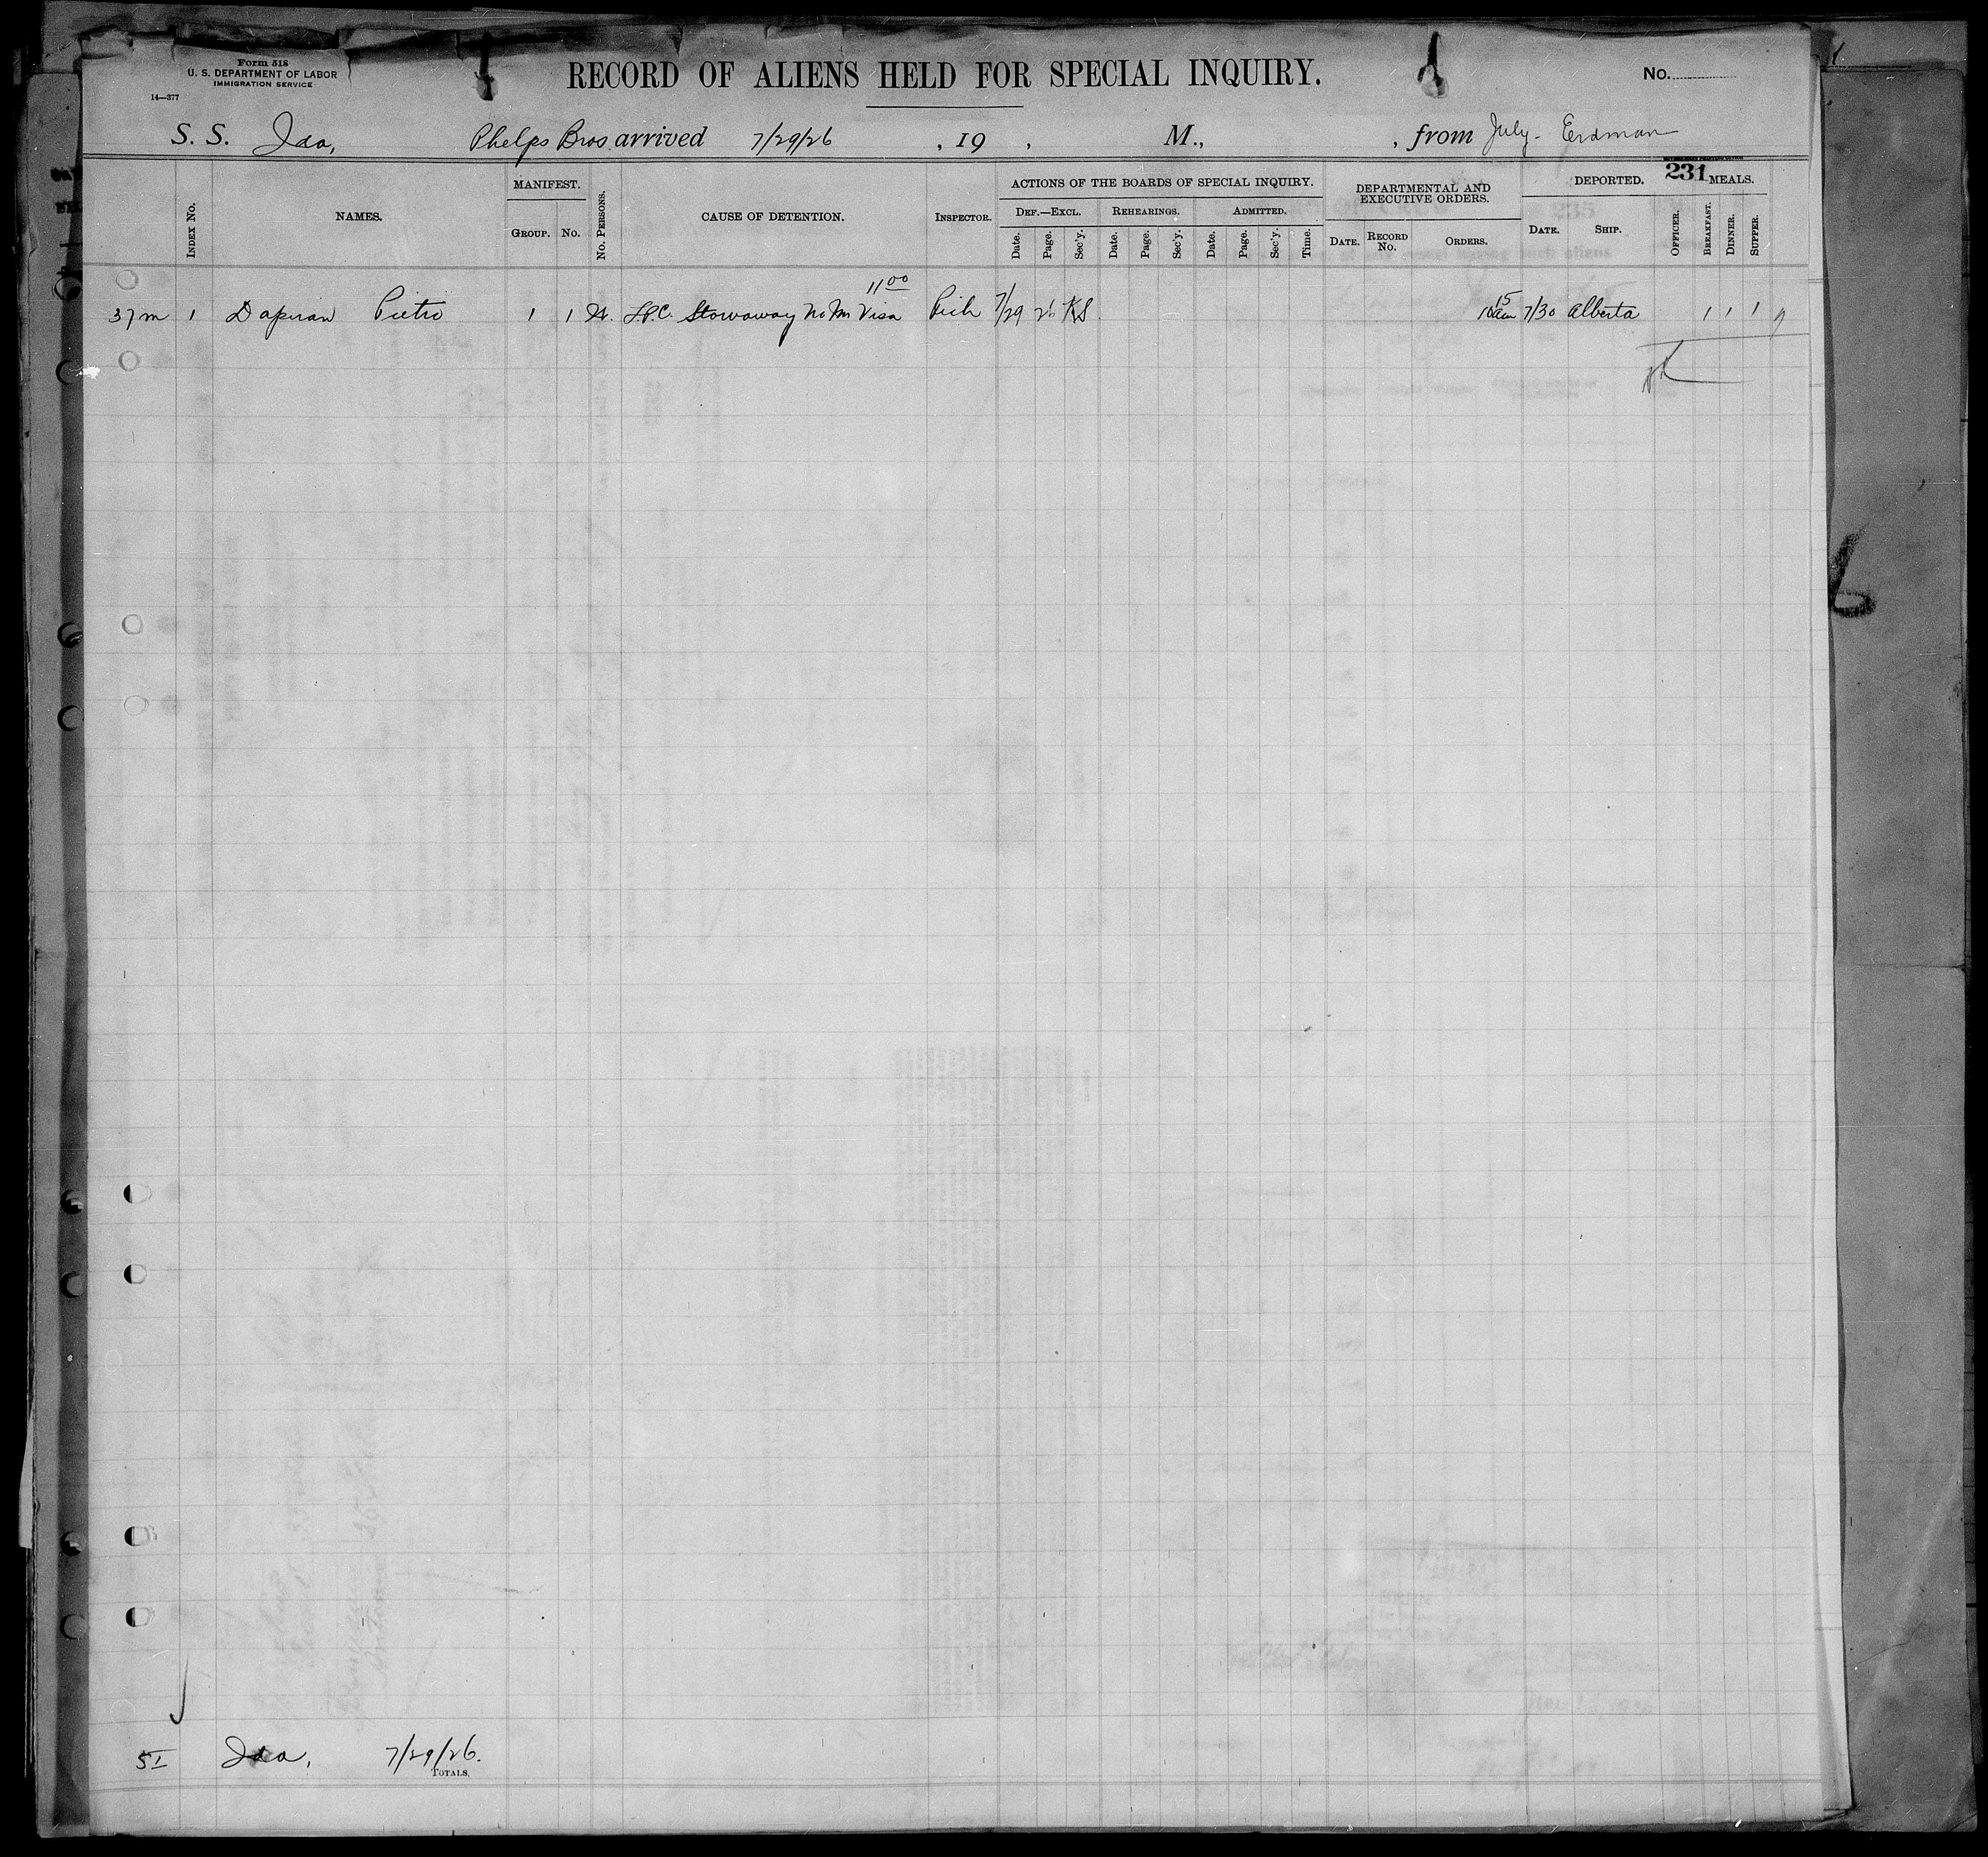 Form 518
U. S. DEPARTMENT OF LABOR
IMMIGRATION SERVICE
14—377
RECORD OF ALIENS HELD FOR SPECIAL INQUIRY.
No.
S. S. Ida, Phelps Bros. arrived 7/29/26 , 19 , M., , from July - Erdman
231
INDEX No.
NAMES.
MANIFEST.
GROUP. No.
No. PERSONS.
CAUSE OF DETENTION.
INSPECTOR.
ACTIONS OF THE BOARDS OF SPECIAL INQUIRY.
DEF.—EXCL. REHEARINGS. ADMITTED.
Date. Page. Sec'y. Date. Page. Sec'y. Date. Page. Sec'y. Time.
DEPARTMENTAL AND
EXECUTIVE ORDERS.
DATE. RECORD No. ORDERS.
DEPORTED.
DATE. SHIP.
OFFICER.
MEALS.
BREAKFAST. DINNER. SUPPER.
11 00
37 m 1 Dapiran Pietro 1 1 Stowaway no Visa 7/29 26 KS 10 15 am 7/30 Alberta 1 1 1
5I Ida, 7/29/26.
TOTALS.
6